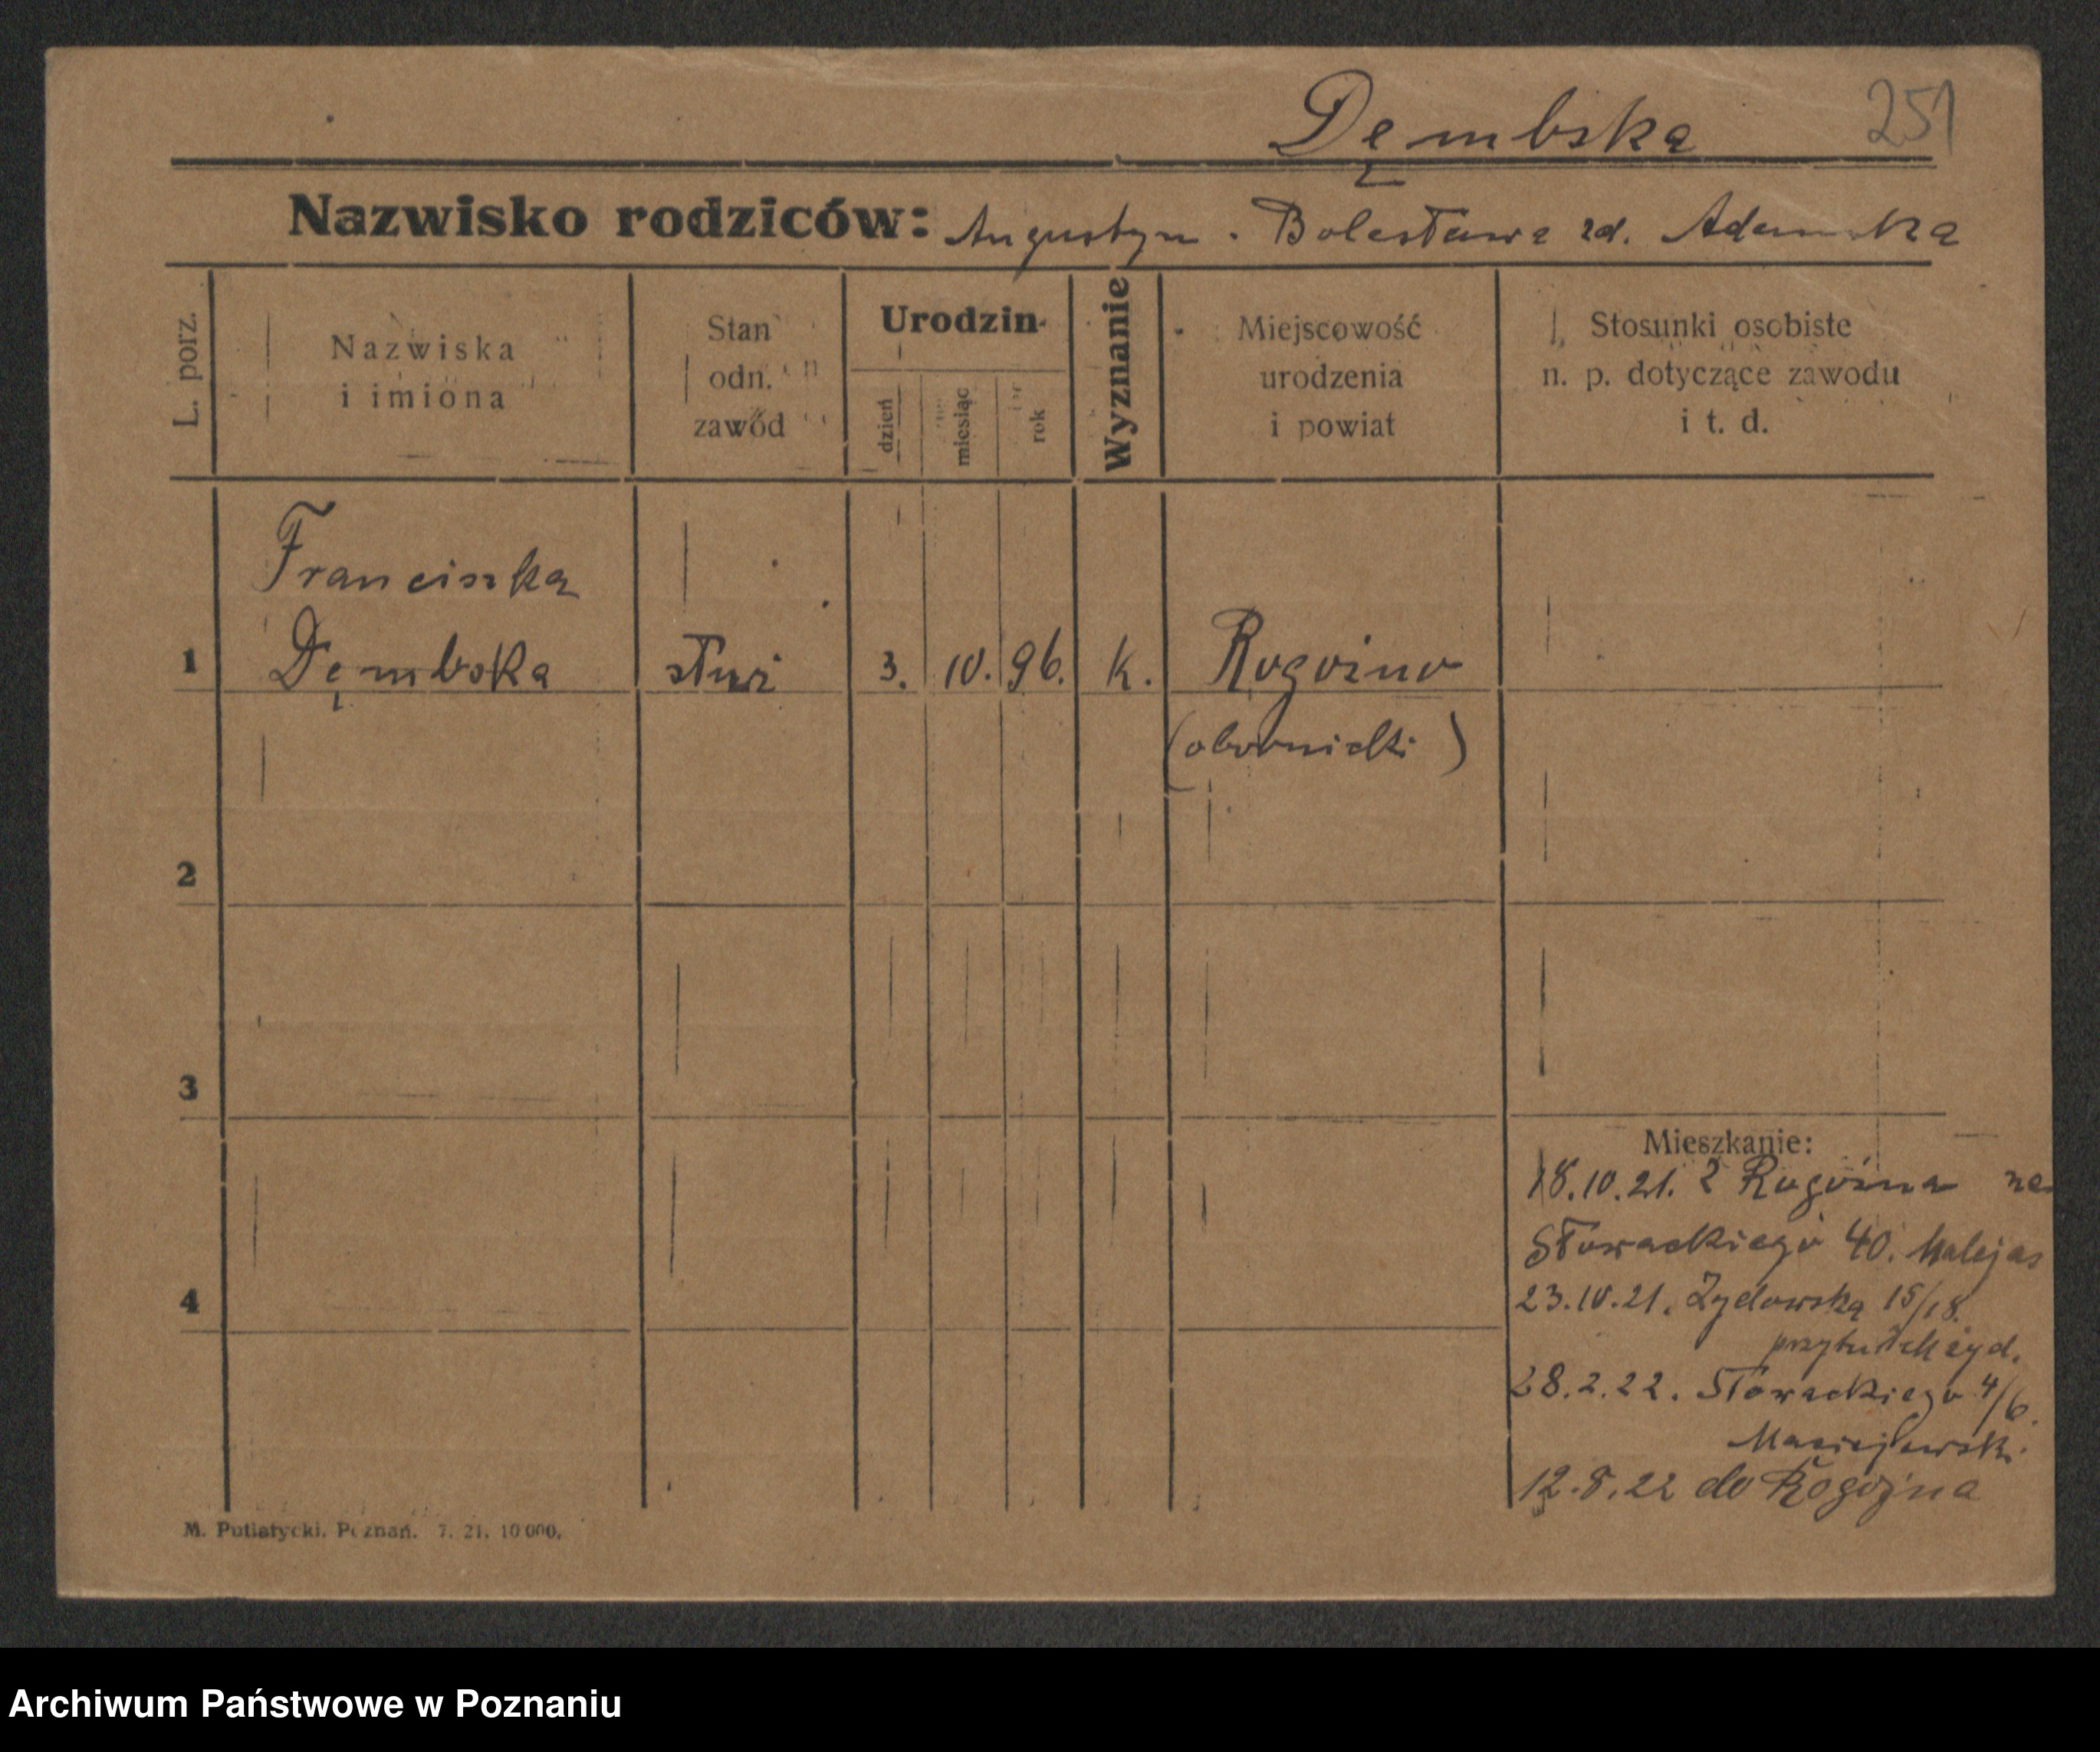 Dęmbska 251
Nazwisko rodziców: Augustyn - Bolesława zd. Adamska
L. porz.
Nazwiska
i imiona
Stan
odn.
zawód
Urodzin
dzień
miesiąc
rok
Wyznanie
Miejscowość
urodzenia
i powiat
Stosunki osobiste
n. p. dotyczące zawodu
i t. d.
Franciszka
1 Dęmbska służ 3. 10. 96. k. Rogoźno
(obornicki)
2
3
Mieszkanie:
18.10.21. z Rogoźna na
Słowackiego 40.
23.10.21. Żydowska 15/18.
4
przytułek żyd.
28.2.22. Słowackiego 4/6.
Maciejewski
12.8.22 do Rogoźna
M. Putiatycki. Poznań. 7. 21. 10 000.
Archiwum Państwowe w Poznaniu